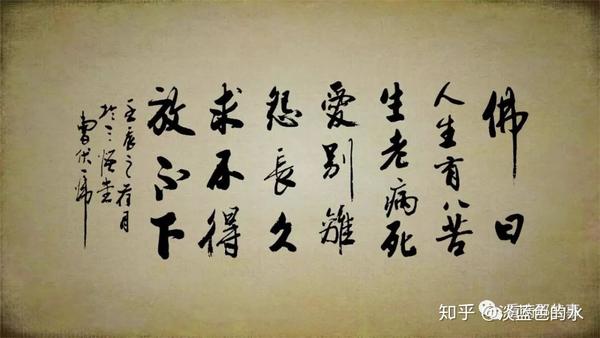 佛曰
人生有八苦
生老病死
愛别離
怨長久
求不得
放不下
壬辰之荷月
於三悟堂
曹伏虎
知乎 @淡蓝色的水